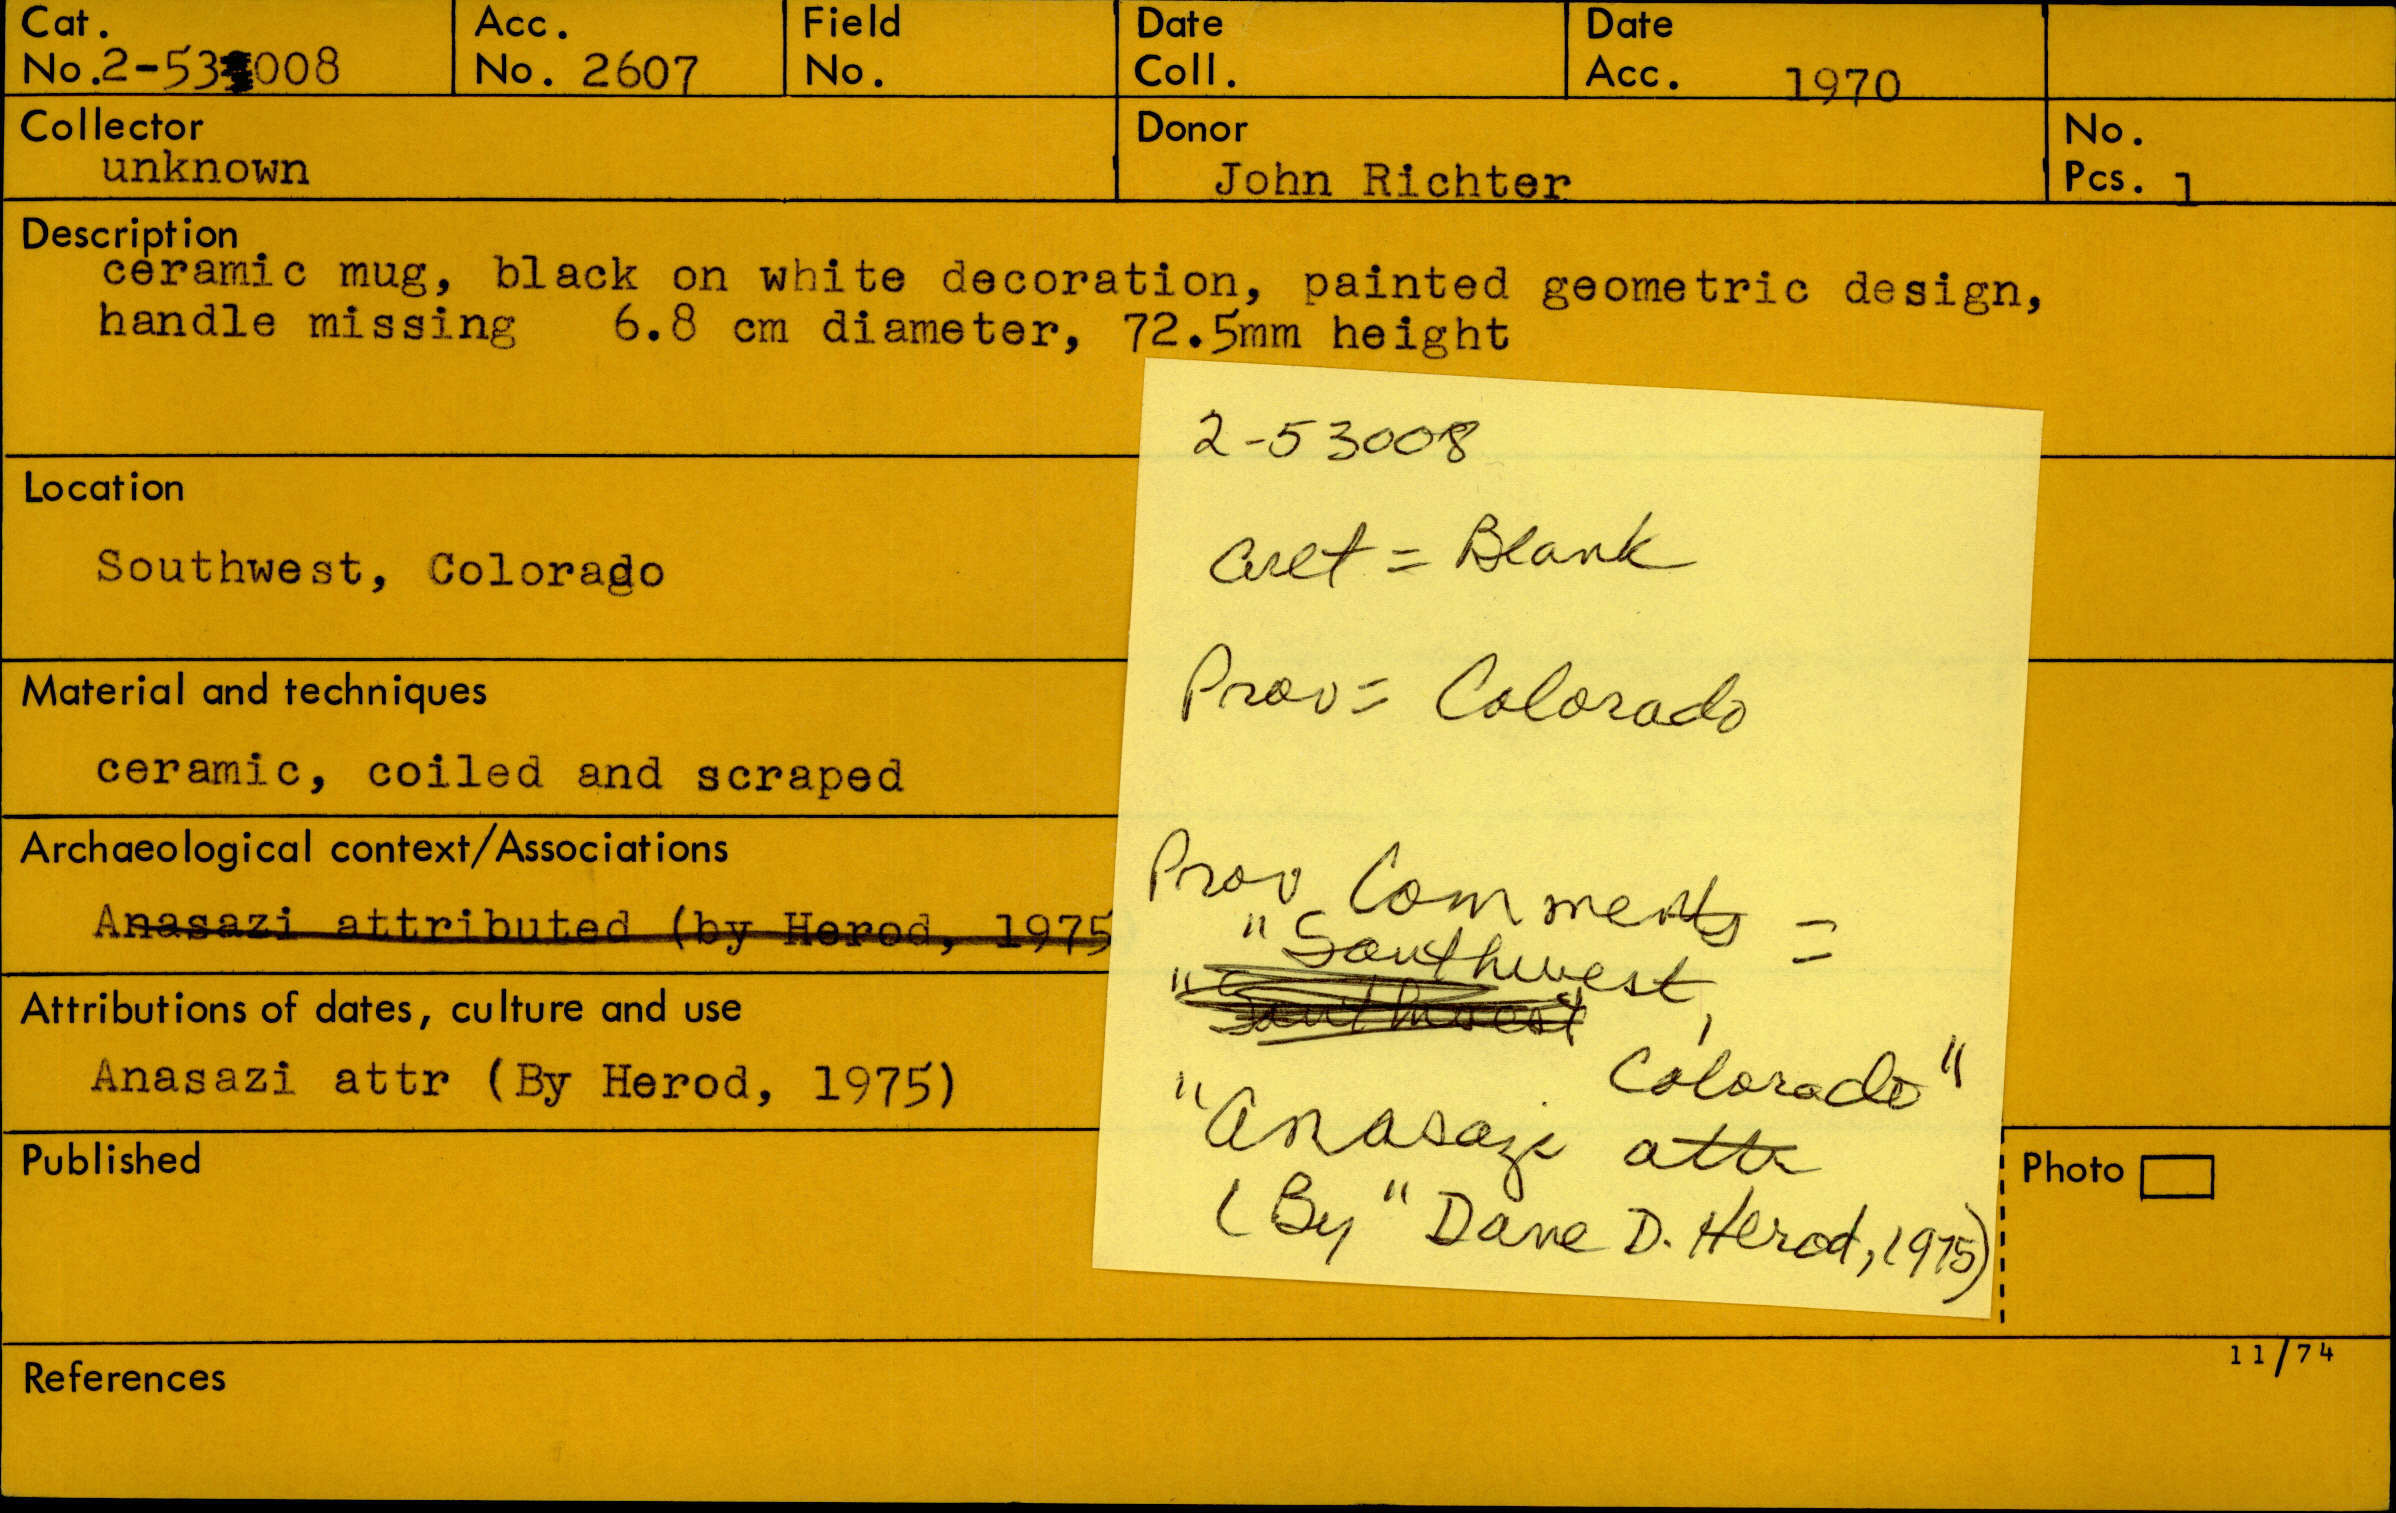 Cat. No. 2-53008
Acc. No. 2607
Field No.
Date Coll.
Date Acc. 1970
Collector
unknown
Donor
John Richter
No. Pcs. 1
Description
ceramic mug, black on white decoration, painted geometric design,
handle missing 6.8 cm diameter, 72.5mm height
Location
Southwest, Colorado
Material and techniques
ceramic, coiled and scraped
Archaeological context/Associations
Anasazi attributed (by Herod, 1975
Attributions of dates, culture and use
Anasazi attr (By Herod, 1975)
Published
Photo
References
11/74
2-53008
Cult = Blank
Prov = Colorado
Prov Comments =
"Southwest,
"Southwest
Colorado"
"Anasazi attr
(By" Dave D. Herod, 1975)